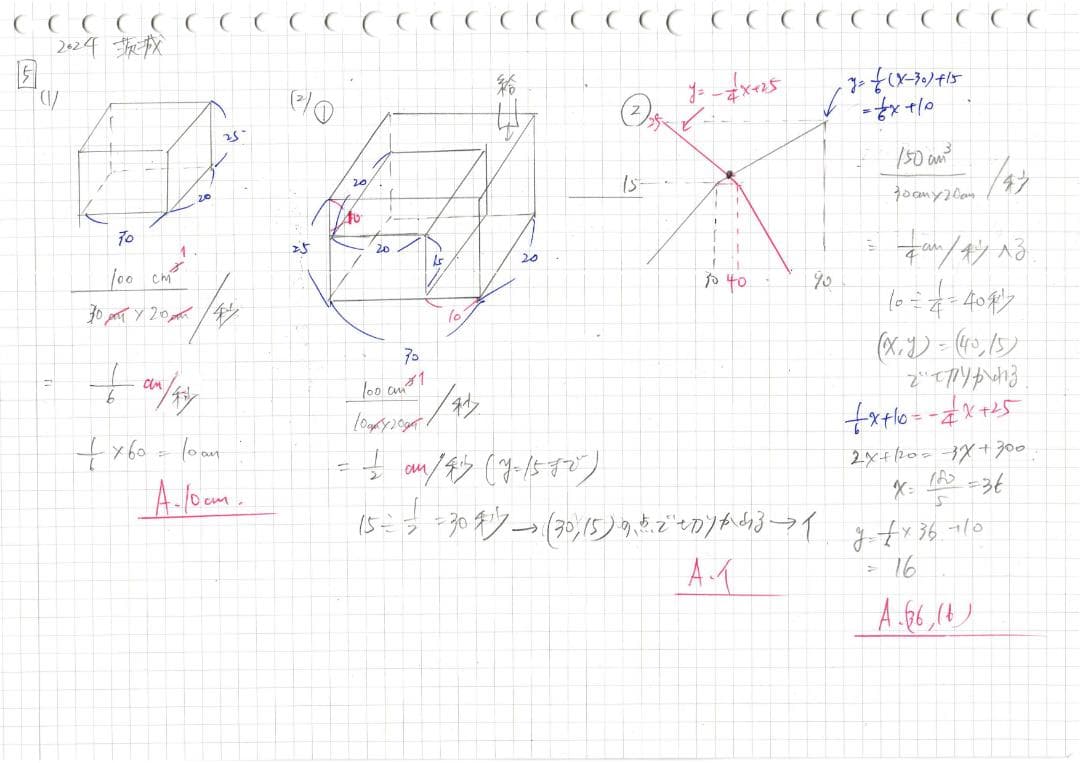 2024 茨城
5
(1)
25
20
30
100 cm³ 1
30cm×20cm /秒
= 1/6 cm/秒
1/6 ×60=10cm
A.10cm.
(2) ①
給
20
10
25
20
15
20
10
30
100cm³ 1
10cm×20cm /秒
= 1/2 cm/秒 (y=15まで)
15÷1/2=30秒→(30,15)の点で切りかわる→イ
A.イ
②
y=-1/4x+25
y=1/6(x-30)+15
=1/6x+10
25
15
30 40 90
150cm³
30cm×20cm /秒
= 1/4cm/秒 へる
10÷1/4=40秒
(x,y)=(40,15)
で切りかわる
1/6x+10=-1/4x+25
2x+120=-3x+300
x=180/5=36
y=1/6×36+10
=16
A.(36,16)